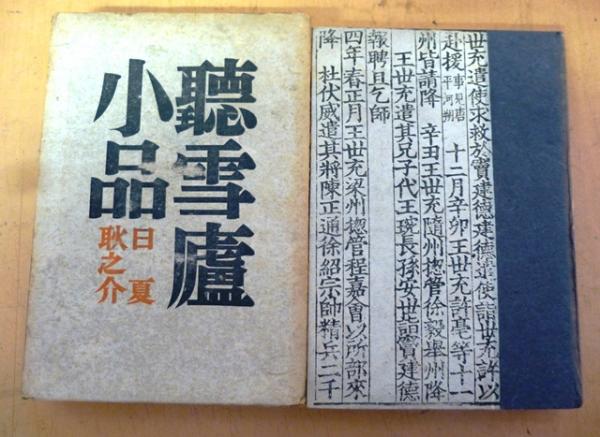 聽雪廬
小品
日夏
耿之介
世充遣使求救於竇建德建德遣使詣世充許以
赴援 事見唐平河朔 十二月辛卯王世充許亳等十一
州皆請降 辛丑王世充隨州揔管徐毅舉州降
王世充遣其兄子代王琬長孫安世詣竇建德
報聘且乞師
四年春正月王世充梁州揔管程嘉會以所部來
降 杜伏威遣其將陳正通徐紹宗帥精兵二千